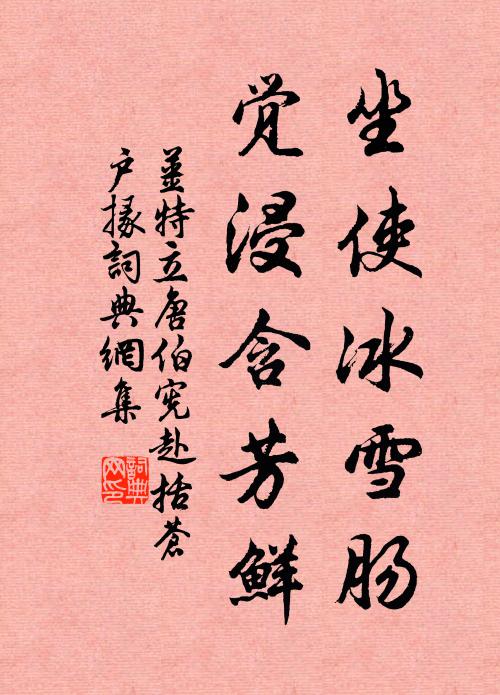 坐使冰雪肠
觉浸含芳鲜
姜特立唐伯宪赴括苍
户掾詞典網集
詞典网印